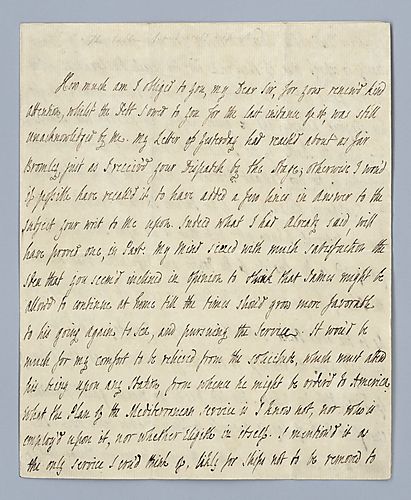 How much am I obliged to you, my Dear Sir, for your renew'd kind
attention, whilst the Debt I owed to you for the last instance of it was still
unacknowledged by me. My Letter of Yesterday had reach'd about as far
Bromley just as I receiv'd your Dispatch by the Stage, otherwise I wou'd
if possible have recall'd it, to have added a few lines in Answer to the
subject your writ to me upon. Indeed what I had Already said will
have proved one, in Part. My Mind seized with much satisfaction the
Idea that you seem'd inclined in Opinion to think that James might be
allow'd to continue at home till the times shou'd grow more favorable
to his going again to Sea, and pursuing the Service. It wou'd be
much for my comfort to be relieved from the solicitude, which must attend
his being upon any Station, from whence he might be order'd to America
What the Plan of the Mediterranean service is I know not, nor who is
employ'd upon it, nor whether Eligible in itself. I mention'd it as
the only service I cou'd think of, likely for Ships not to be removed to